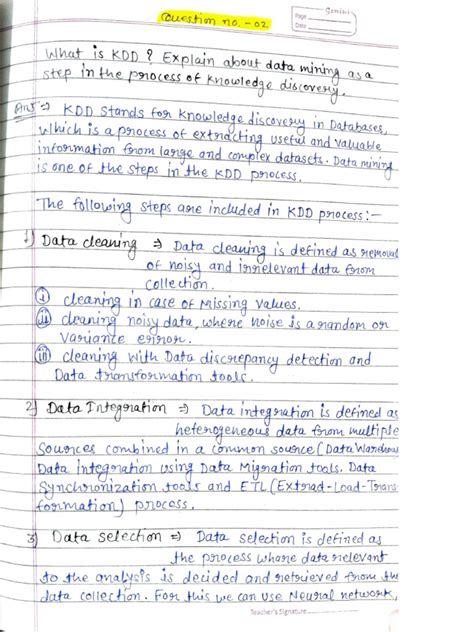 Question no. - 02
Gemini
Page
Date
What is KDD ? Explain about data mining as a
step in the process of knowledge discovery.
Ans ⇒ KDD stands for knowledge discovery in Databases,
which is a process of extracting useful and valuable
information from large and complex datasets. Data mining
is one of the steps in the KDD process.
The following steps are included in KDD process:-
1) Data cleaning ⇒ Data cleaning is defined as removal
of noisy and irrelevant data from
collection.
(i) cleaning in case of Missing values.
(ii) cleaning noisy data, where noise is a random or
Variante error.
(iii) cleaning with Data discrepancy detection and
Data transformation tools.
2) Data Integration ⇒ Data integration is defined as
heterogeneous data from multiple
Sources combined in a common source (Data Warehous
Data integration using Data Migration tools, Data
Synchronization tools and ETL (Extrad-Load-Trans-
formation) process.
3) Data selection ⇒ Data selection is defined as
the process whare data relevant
to the analysis is decided and retrieved from the
data collection. For this we can use Neural network,
Teacher's Signature